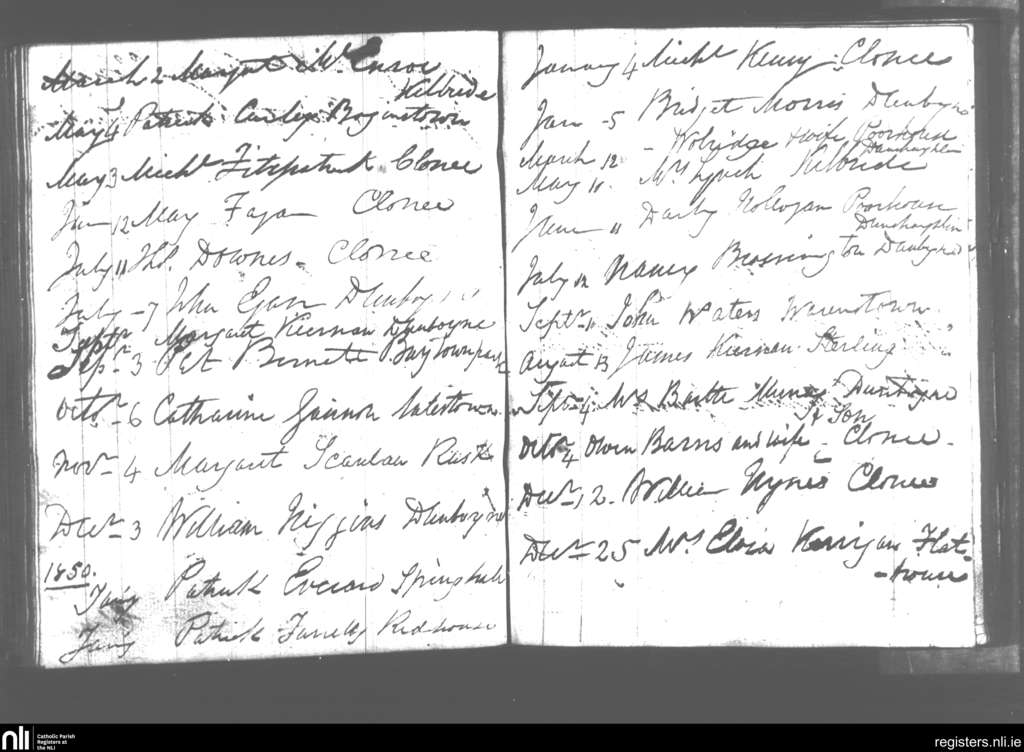 March 2 Margret Mc Enroe
Kilbride
May 4 Patrick Curley
May 3 Michl Fitzpatrick Clonee
Jun 12 May Fagan Clonee
July 11 Ths. Downes - Clonee
July - 7 John Egan Dunboyne
Septr Margaret Kiernan Dunboyne
Sepr 3 Pat Barnett Baytownpark
Octr - 6 Catharine Gannon
Novr - 4 Margaret Scanlan Rusk
Decr - 3 William Higgins Dunboyne
1850.
Jany Patrick Everard
Jany Patrick Farrelly Redhouse
January 4 Michl Kenny Clonee
Jan - 5 Bridget Morris Dunboyne
March 12 - Wolridge & wife Poorhouse
Dunshaughlin
May 11. Mrs Lynch Kilbride
June 11 Darby Poorhouse
Dunshaughlin
July 12 Nancy Dunboyne
Septr 11 John Waters Warenstown
August 13 James Kiernan Sterling
Septr 4 Mrs Dunboyne
& Son
Octr 4 Owen Barns and wife - Clonee -
Decr 12. William Hynes Clonee
Decr 25 Mrs Kerrigan Flat-
-house
nli
Catholic Parish
Registers at
the NLI
registers.nli.ie